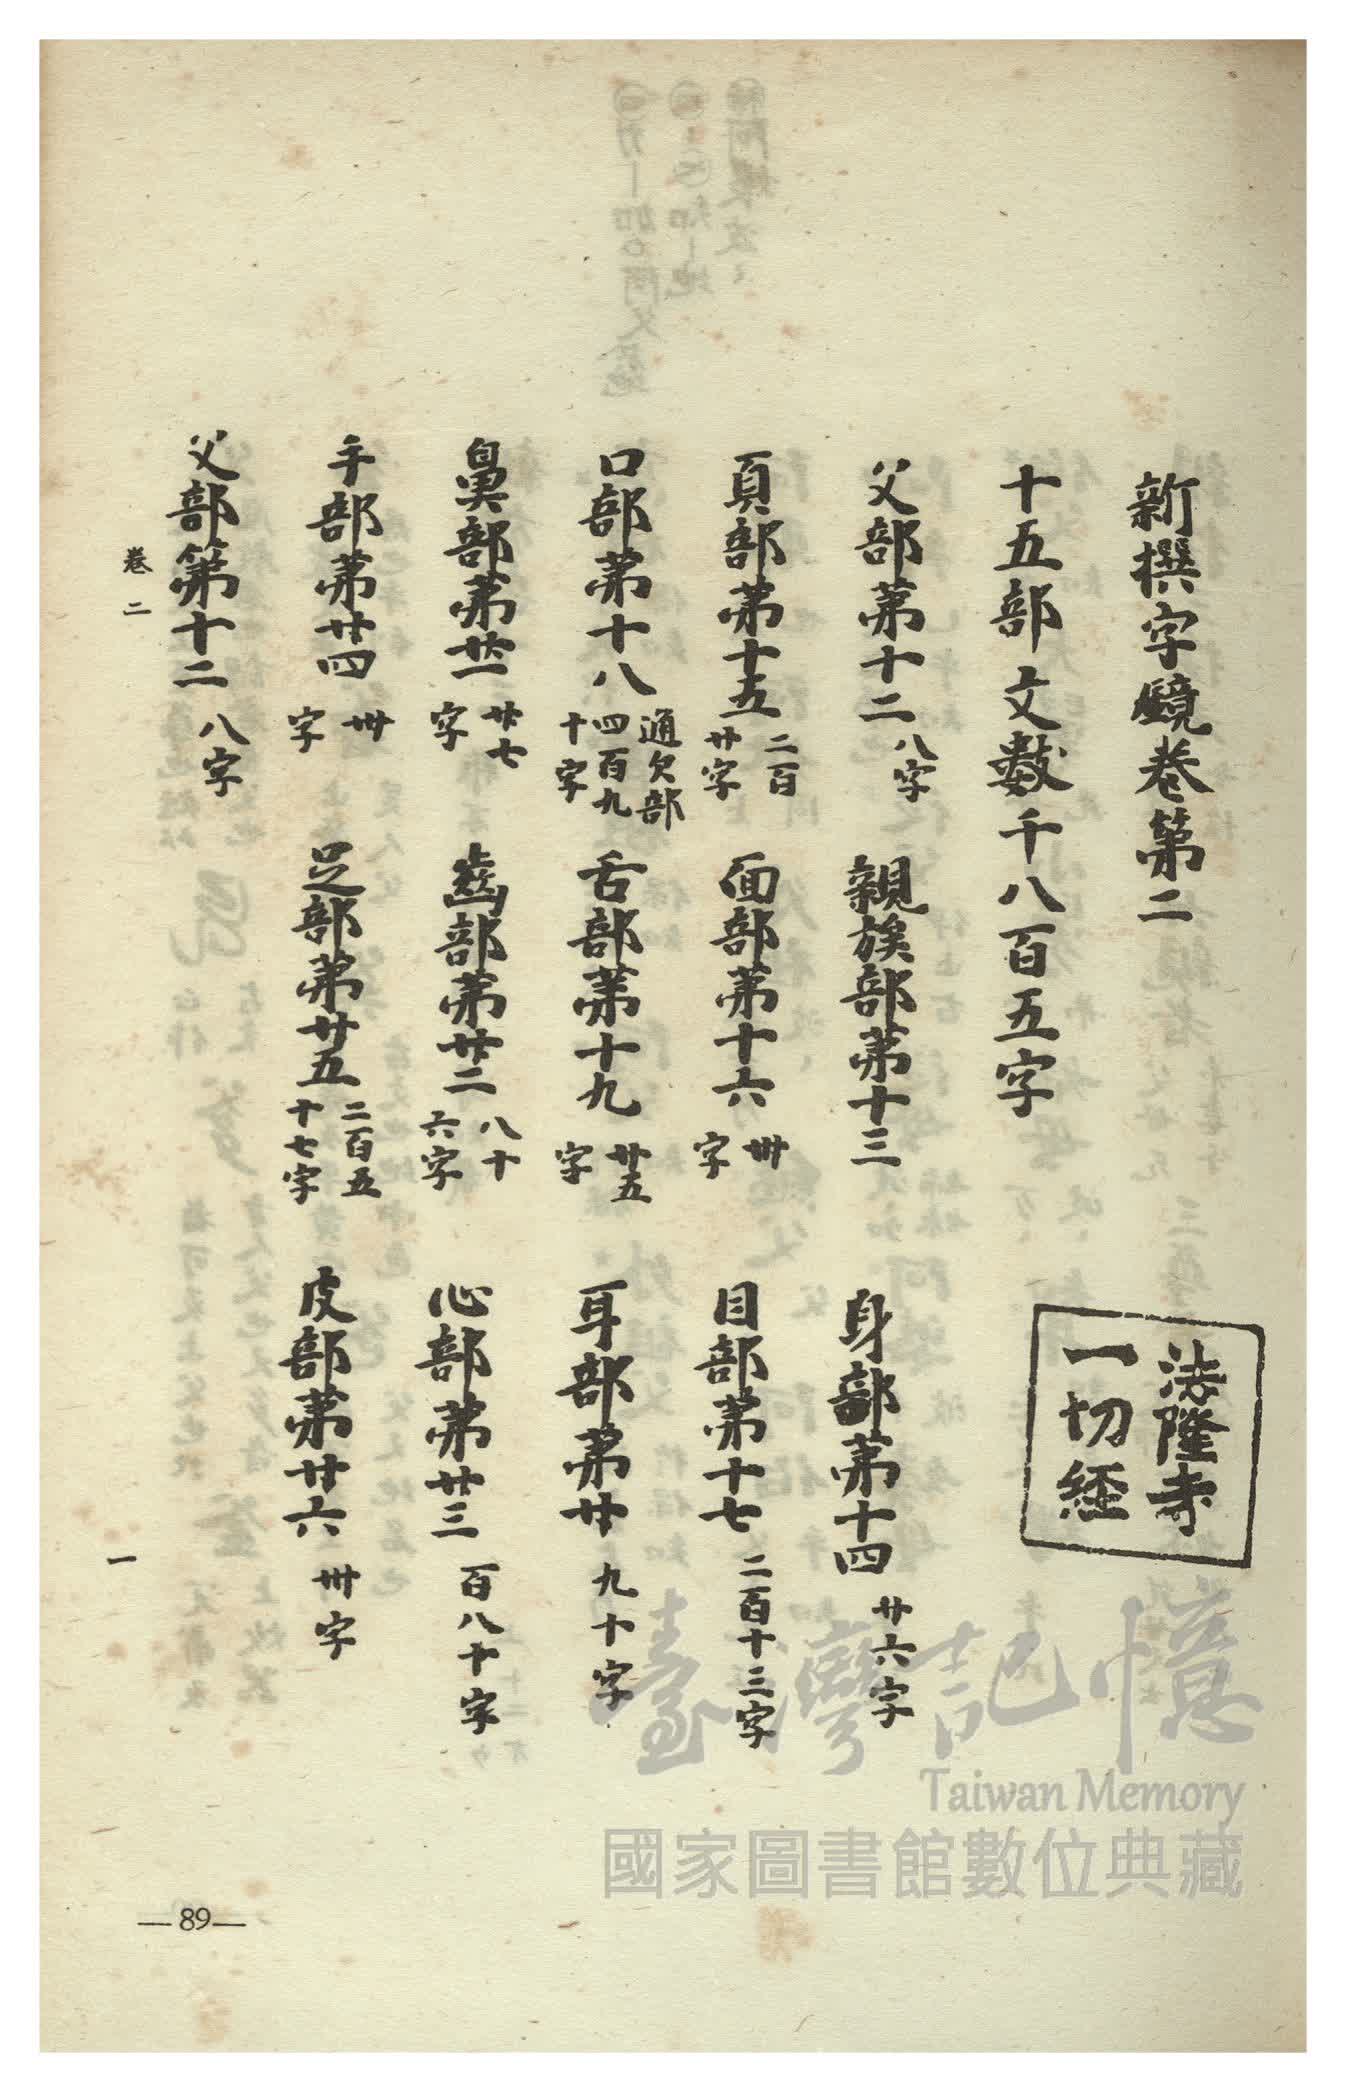 新撰字鏡卷第二
法隆寺
一切經
十五部 文數千八百五字
父部第十二 八字 親族部第十三 身部第十四 廿六字
頁部第十五 二百廿字 面部第十六 卅字 目部第十七 二百十三字
口部第十八 通欠部四百九十字 舌部第十九 廿五字 耳部第廿 九十字
鼻部第廿一 廿七字 齒部第廿二 八十六字 心部第廿三 百八十字
手部第廿四 卌字 足部第廿五 二百五十七字 皮部第廿六 卅字
父部第十二 八字
卷二
一
—89—
臺灣記憶
Taiwan Memory
國家圖書館數位典藏